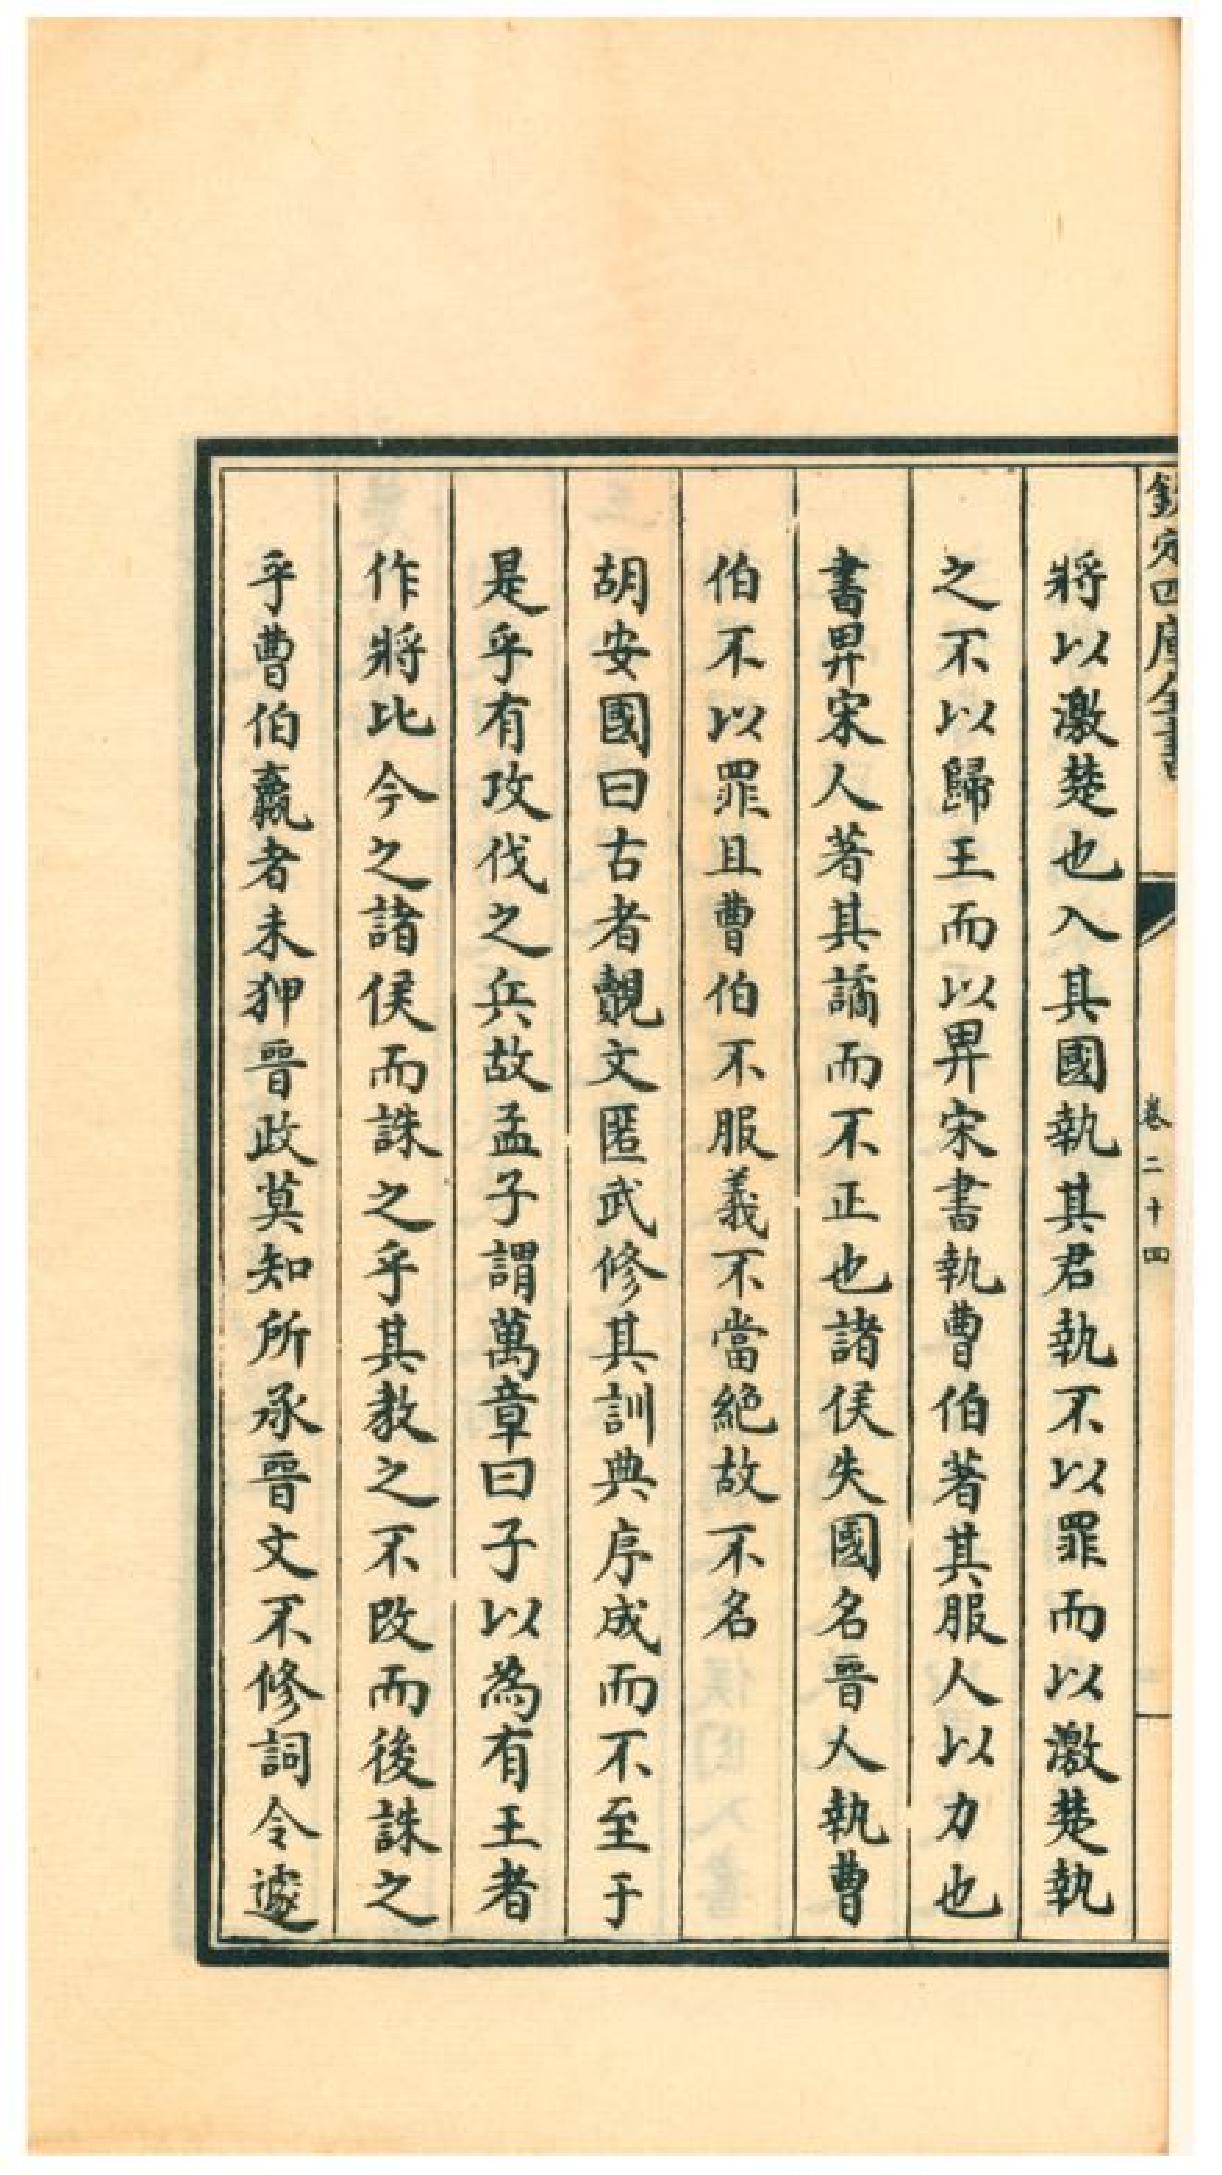 欽定四庫全書
卷二十四
將以激楚也入其國執其君執不以罪而以激楚執
之不以歸王而以畀宋書執曹伯著其服人以力也
書畀宋人著其譎而不正也諸侯失國名晉人執曹
伯不以罪且曹伯不服義不當絶故不名
胡安國曰古者覿文匿武修其訓典序成而不至于
是乎有攻伐之兵故孟子謂萬章曰子以為有王者
作將比今之諸侯而誅之乎其教之不改而後誅之
乎曹伯羸者未狎晉政莫知所承晉文不修詞令遽